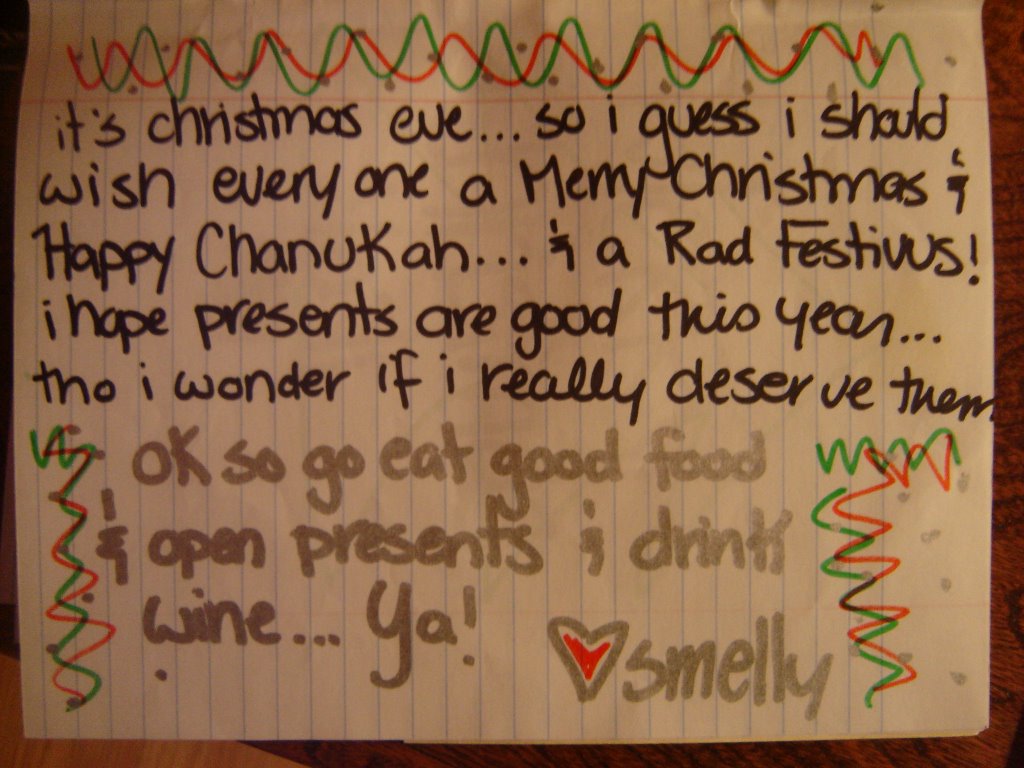 it's christmas eve... so i guess i should
wish every one a Merry Christmas &
Happy Chanukah... & a Rad Festivus!
i hope presents are good this year...
tho i wonder if i really deserve them
OK so go eat good food
& open presents & drink
wine... Ya!
♥ smelly